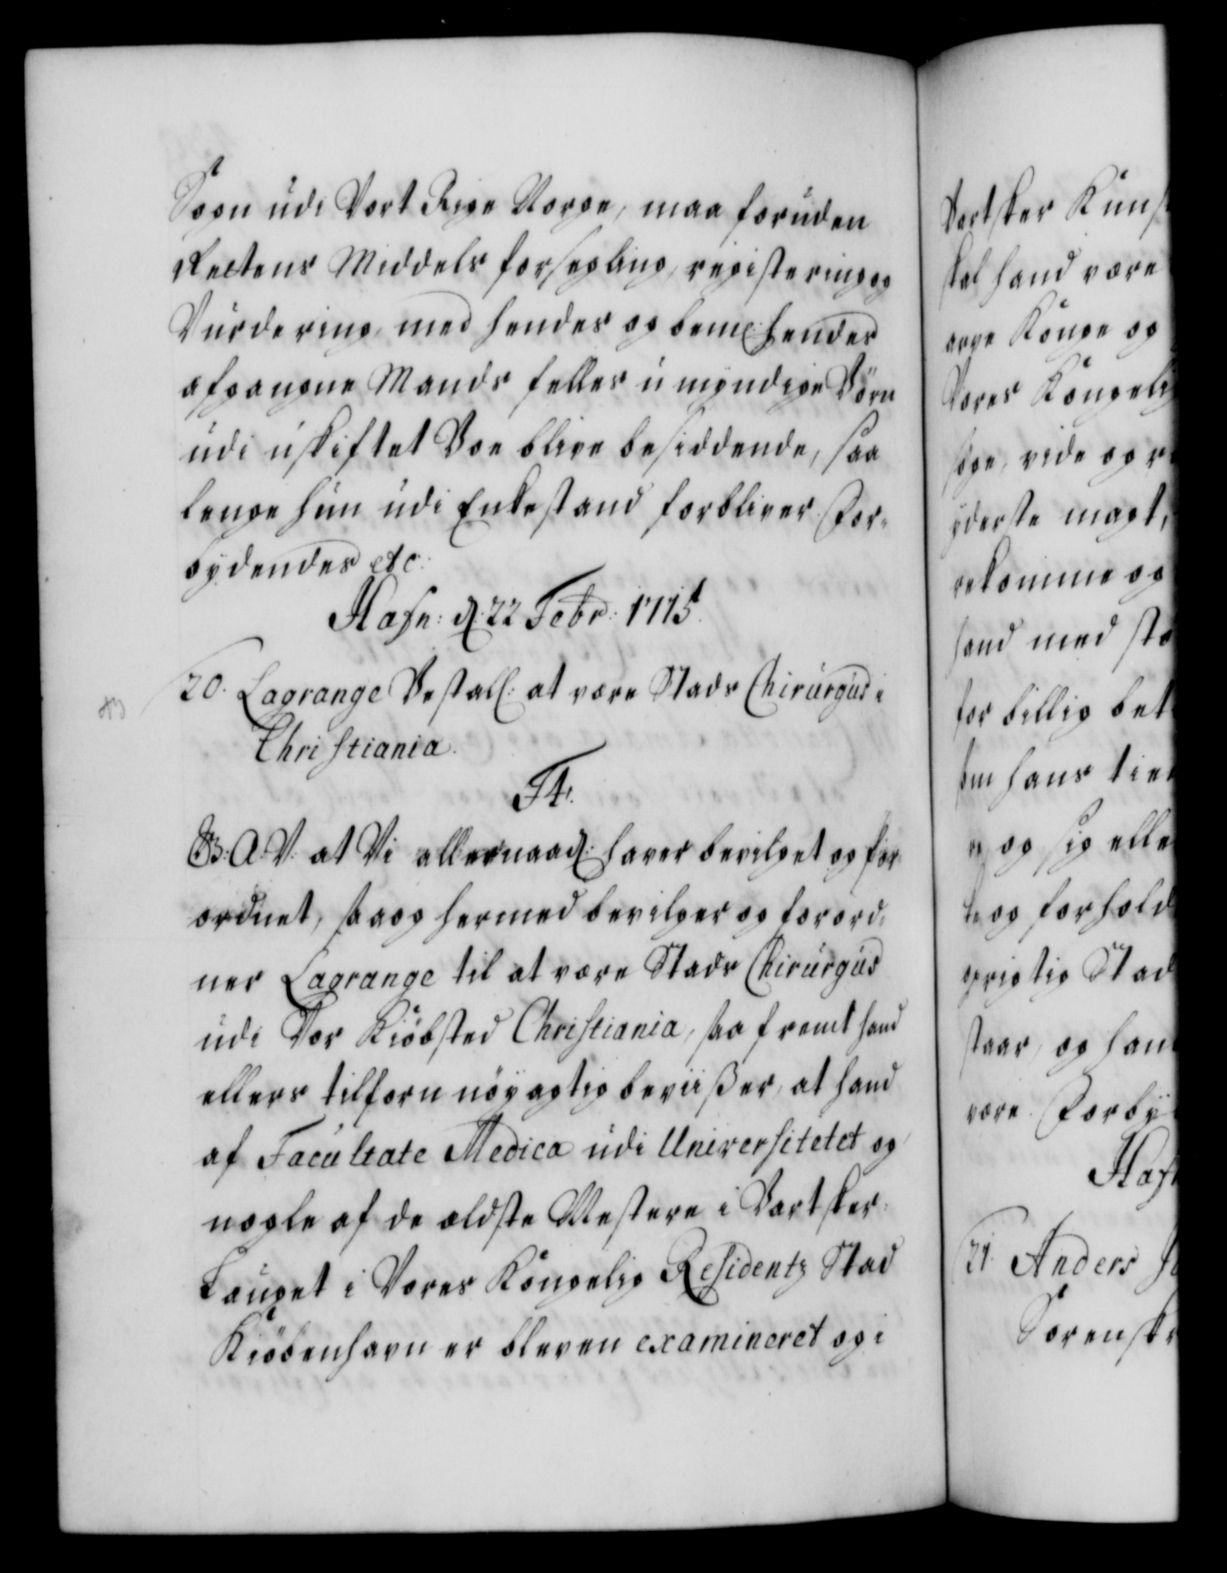 Sogn udi Vort Rige Norge, maa foruden
Rettens Middels forsegling, registering og
Vurdering med hendes og bem: hendes
afgangne Mands felles u myndige Börn
udi uskiftet Boe blive besiddende, saa
lenge hun udi Enkestand forbliver. For-
bydendes etc:
Hafn: d. 22 Febr: 1715.
20. Lagrange Bestall: at være Stads Chirurgus i
Christiania.
F4.
G. A. V. at Vi allernaad: haver bevilget og for
ordnet, saa og hermed bevilger og forord-
ner Lagrange til at være Stads Chirurgus
udi Vor Kiöbsted Christiania, saa fremt hand
ellers tilforn nöyagtig beviißer, at hand
af Facultate Medica udi Universitetet og
nogle af de ældste Mestere i Bartsker-
Lauget i Vores Kongelig Residentz Stad
Kiöbenhavn er bleven examineret og i
Bartsker Kunst
skal hand være
arve Konge og
Vores Kongelig
söge, vide og r
yderste magt,
rekomme og
hand med sto
for billig bet
som hans tien
og sig elle
te og forhold
gtig Stad
staar, og han
være. Forby
Haf
21. Anders
Sorenskr